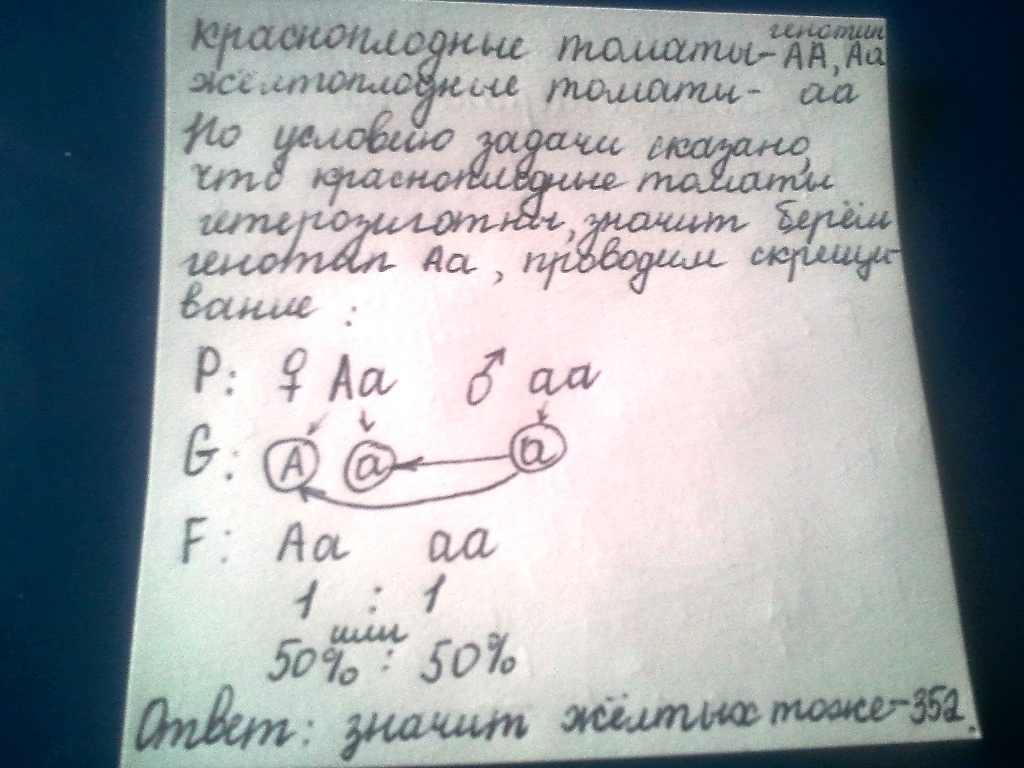 генотип
красноплодные томаты-АА, Аа
жёлтоплодные томаты- аа
По условию задачи сказано,
что красноплодные томаты
гетерозиготны, значит берём
генотип Аа, проводим скрещи-
вание :
Р: ♀ Аа ♂ аа
G: А а а
F: Аа аа
1 : 1
или
50% : 50%
Ответ: значит жёлтых тоже-352.